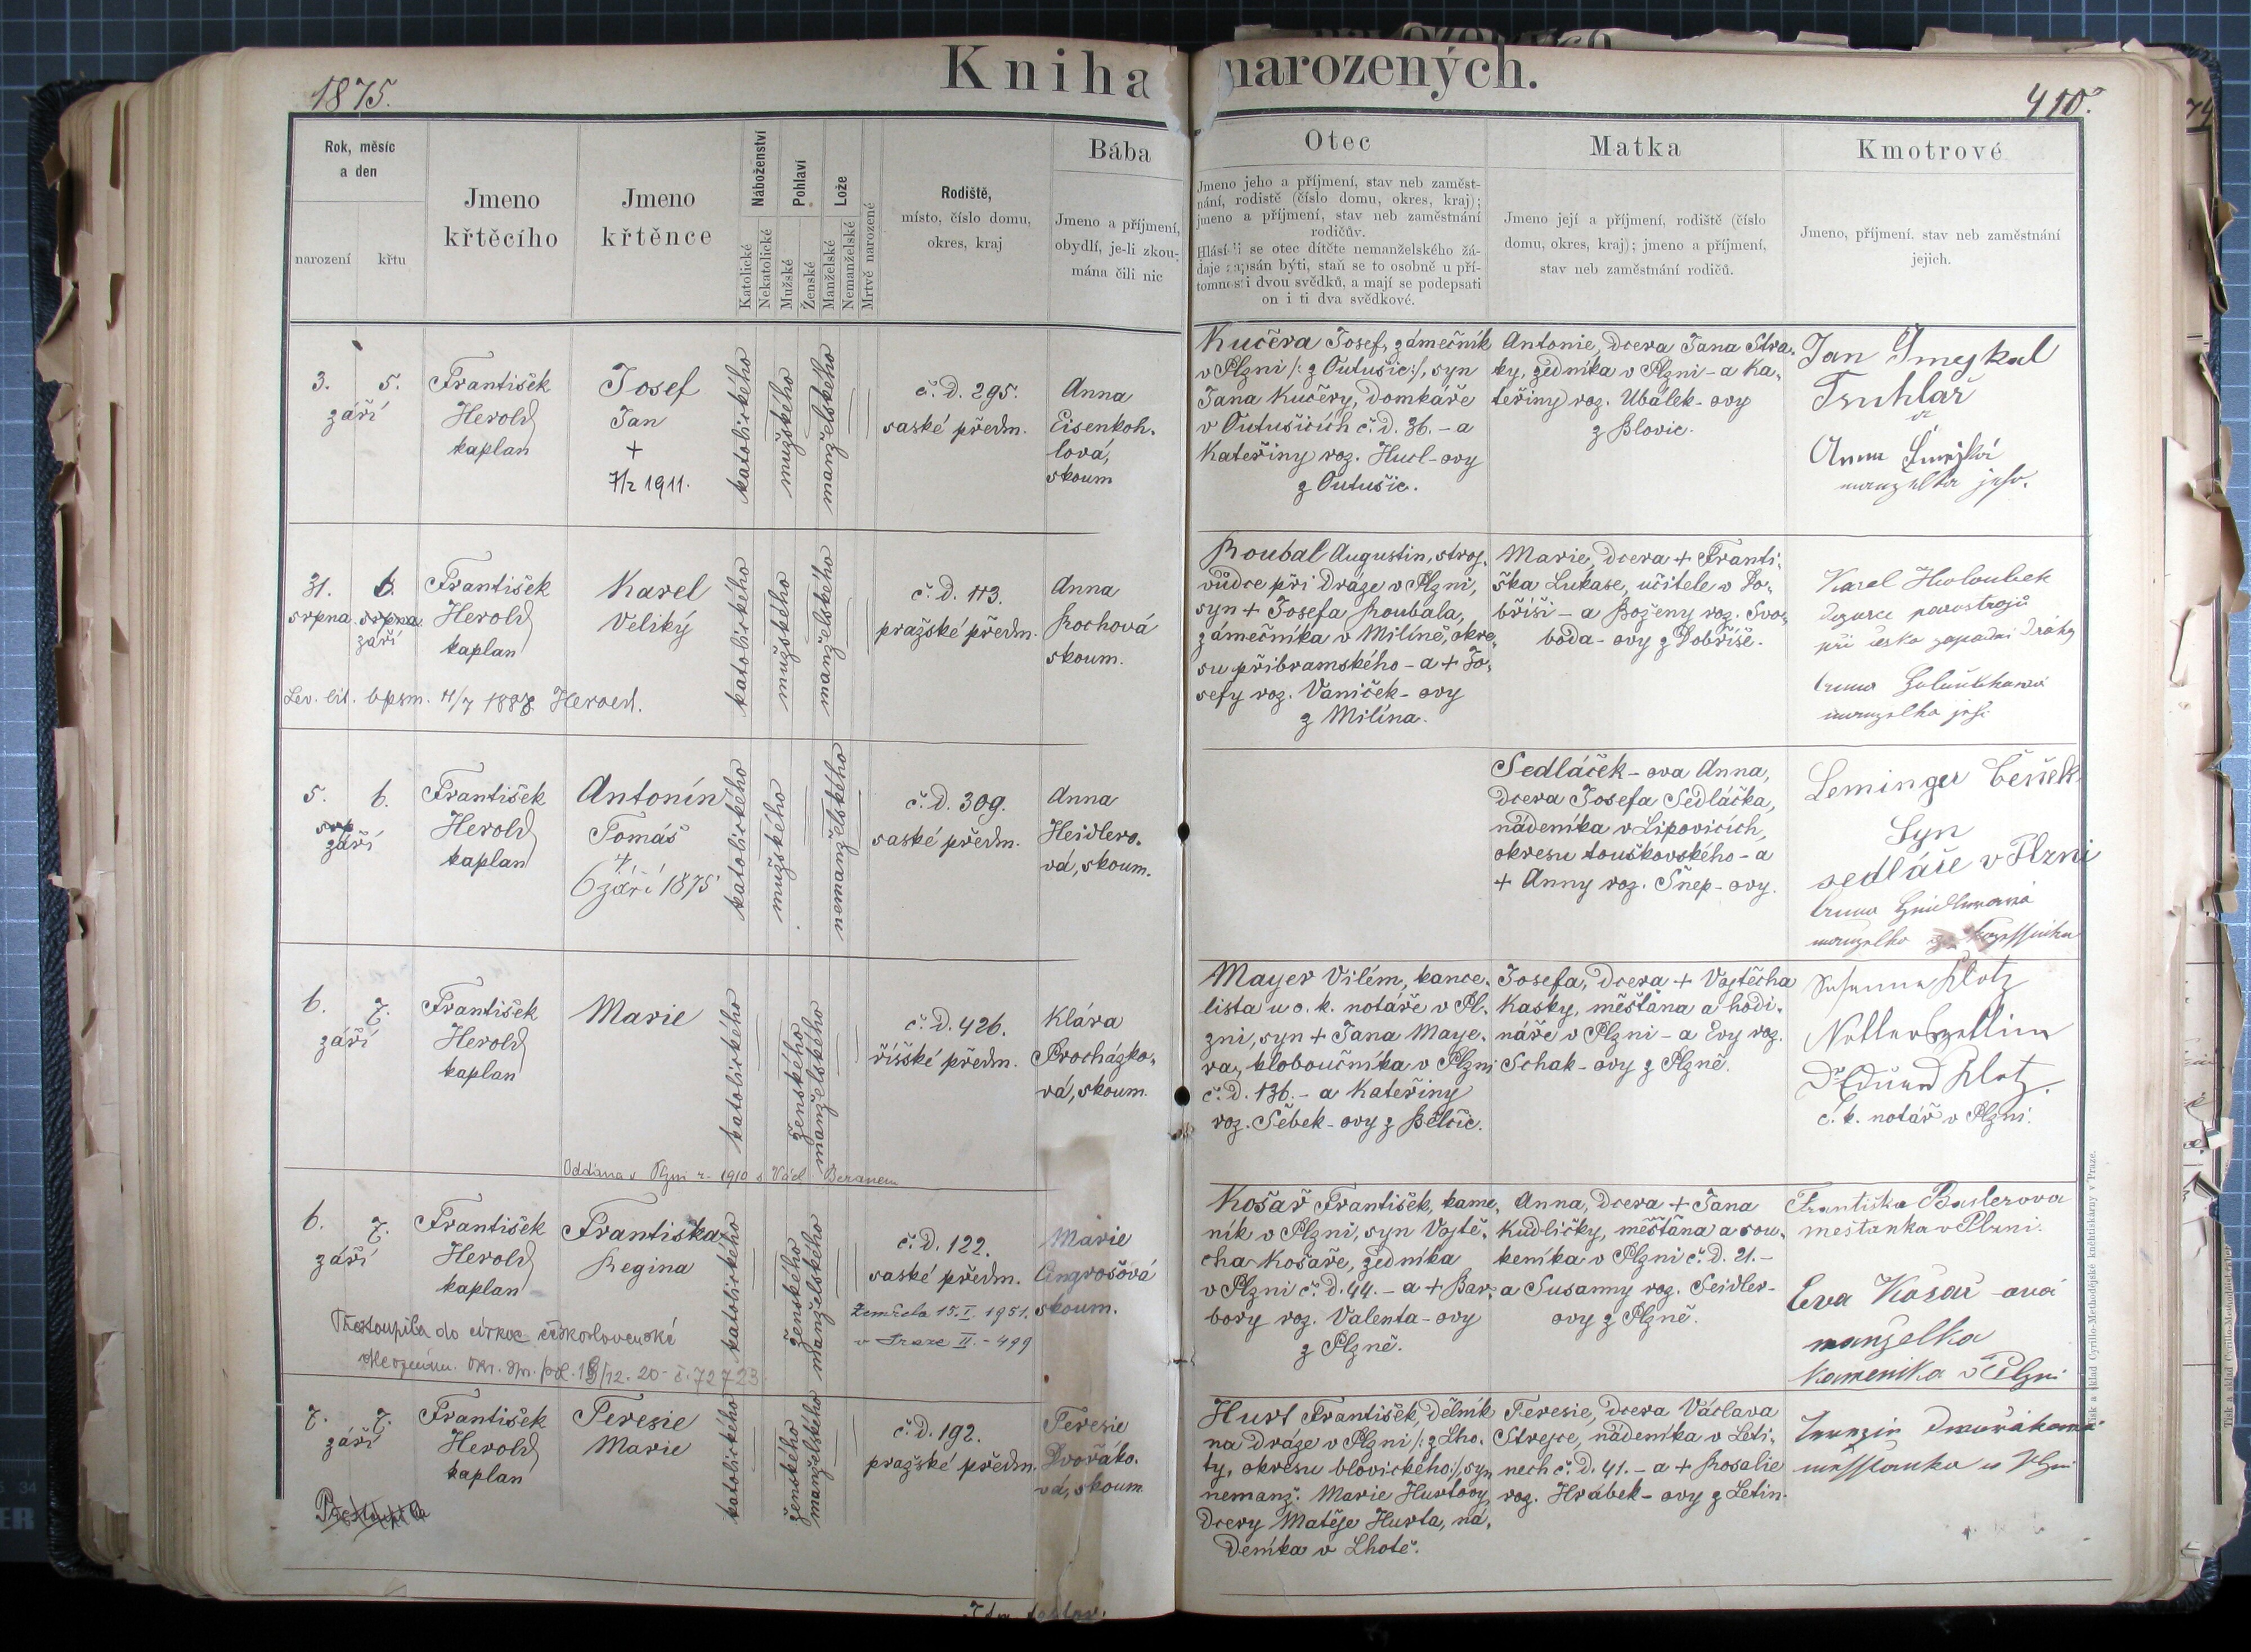 Kniha narozených.
1875.
410.
Rok, měsíc
a den
narození
křtu
Jmeno
křtěcího
Jmeno
křtěnce
Náboženství
Katolické
Nekatolické
Pohlaví
Mužské
Ženské
Lože
Manželské
Nemanželské
Mrtvě narozené
Rodiště,
místo, číslo domu,
okres, kraj
Bába
Jmeno a příjmení,
obydlí, je-li zkou-
mána čili nic
Otec
Jmeno jeho a příjmení, stav neb zaměst-
nání, rodiště (číslo domu, okres, kraj);
jmeno a příjmení, stav neb zaměstnání
rodičův.
Hlásí-li se otec dítěte nemanželského žá-
daje zapsán býti, staň se to osobně u pří-
tomnosti dvou svědků, a mají se podepsati
on i ti dva svědkové.
Matka
Jmeno její a příjmení, rodiště (číslo
domu, okres, kraj); jmeno a příjmení,
stav neb zaměstnání rodičů.
Kmotrové
Jmeno, příjmení, stav neb zaměstnání
jejich.
3. 5.
září
František
Herold
kaplan
Josef
Jan
+
7/2 1911.
katolického
mužského
manželského
č. d. 295.
saské předm.
Anna
Eisenkoh-
lová,
skoum
Kučera Josef, zámečník
v Plzni /: z Outušic :/, syn
Jana Kučery, domkáře
v Outušicích č. d. 36. - a
Kateřiny roz. Hucl-ovy
z Outušic.
Antonie, dcera Jana Stra-
ky, zedníka v Plzni - a Ka-
teřiny roz. Ubálek-ovy
z Blovic.
Jan
Truhlář
Anna
manželka jeho.
31. 6.
srpna. srpna
září
František
Herold
kaplan
Karel
Veliký
katolického
mužského
manželského
č. d. 113.
pražské předm.
Anna
Rochová
skoum.
Roubal Augustin, stroj-
vůdce při dráze v Plzni,
syn + Josefa Roubala,
zámečníka v Milíně, okre-
su příbramského - a + Jo-
sefy roz. Vaníček-ovy
z Milína.
Marie, dcera + Franti-
ška Lukase, učitele v Do-
bříši - a Boženy roz. Svo-
boda-ovy z Dobříše.
Karel Holoubek
parostrojů
při česko západní dráhy
manželka jeho
Lev. lit. bpsm. 11/7 1888. Herold.
5. 6.
září
František
Herold
kaplan
Antonín
Tomáš
+
6 září 1875
katolického
mužského
nemanželského
č. d. 309.
saské předm.
Anna
Heidlero-
vá, skoum.
Sedláček-ova Anna,
dcera Josefa Sedláčka,
nádeníka v Lipovicích,
okresu touškovského - a
+ Anny roz. Šnep-ovy.
Leminger Čeněk
Syn
sedláře v Plzni
manželka
6. 7.
září
František
Herold
kaplan
Marie
katolického
ženského
manželského
č. d. 426.
říšské předm.
Klára
Procházko-
vá, skoum.
Mayer Vilém, kance-
lista u c. k. notáře v Pl-
zni, syn + Jana Maye-
ra, kloboučníka v Plzni
č. d. 136. - a Kateřiny
roz. Šebek-ovy z Bělčic.
Josefa, dcera + Vojtěcha
Kasky, měšťana a hodi-
náře v Plzni - a Evy roz.
Schak-ovy z Plzně.
Susanna Klotz
Dr Eduard Klotz.
c. k. notář v Plzni.
Oddána v Plzni r. 1910 s Václ. Beranem
6. 7.
září
František
Herold
kaplan
Františka
Regina
katolického
ženského
manželského
č. d. 122.
saské předm.
Zemřela 15.I. 1951.
v Praze II. - 499
Marie
Angrošová
skoum.
Košař František, kame-
ník v Plzni, syn Vojtě-
cha Košaře, zedníka
v Plzni č. d. 44. - a + Bar-
bory roz. Valenta-ovy
z Plzně.
Anna, dcera + Jana
Kudličky, měšťana a sou-
keníka v Plzni č. d. 21. -
a Susanny roz. Seidler-
ovy z Plzně.
Františka
mešťanka v Plzni.
Eva Košař-ová
manželka
Kamenika v Plzni
Přestoupila do církve československé
12. 20 - č. 72723.
7. 7.
září
František
Herold
kaplan
Teresie
Marie
katolického
ženského
manželského
č. d. 192.
pražské předm.
Teresie
Dvořáko-
vá, skoum
Hurt František, dělník
na dráze v Plzni /: z Lho-
ty, okresu blovického :/, syn
nemanž. Marie Hurtovy,
dcery Matěje Hurta, ná-
deníka v Lhotě.
Teresie, dcera Václava
Strejce, nádeníka v Leti-
nech č. d. 41. - a + Rosalie
roz. Hrábek-ovy z Letin.
Přestoupila
Tisk a sklad Cyrillo-Methodějské kněhtiskárny v Praze.